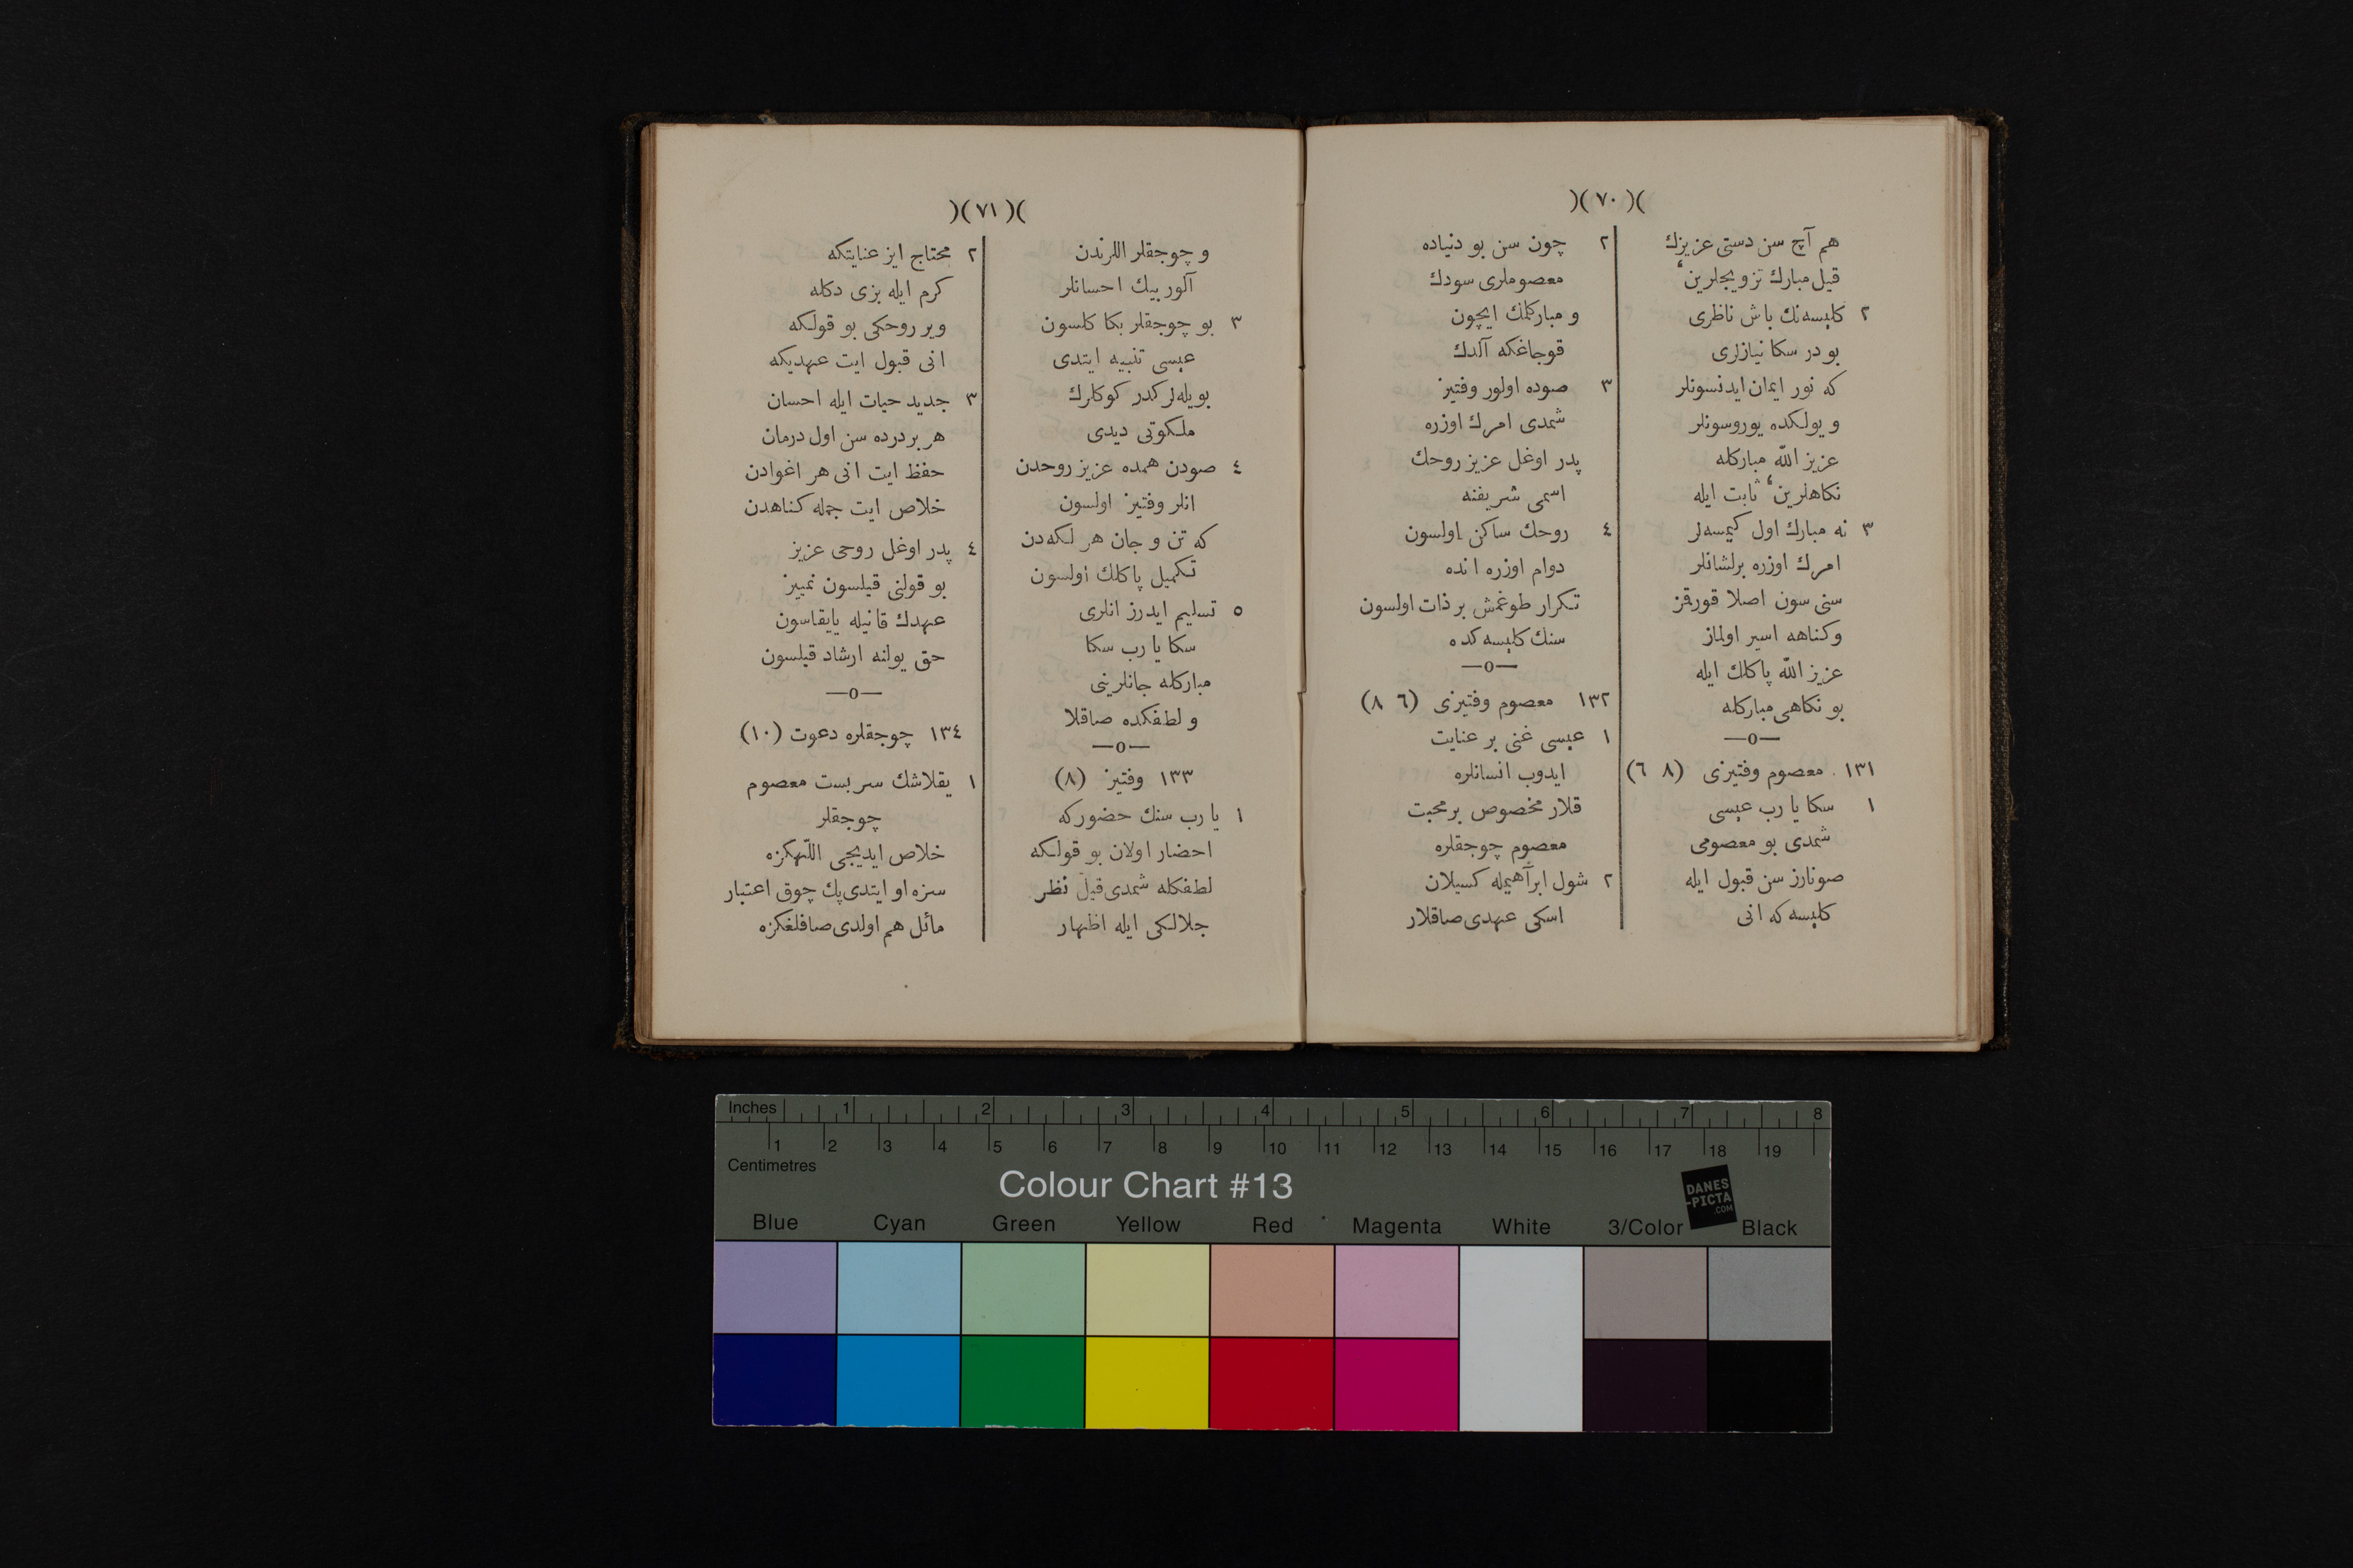 )( ٧٠ )(
هم آچ سن دستى عزيزك
قيل مبارك تزويجلرين‘
٢ كليسه‌نك باش ناظرى
بو در سكا نيازلرى
كه نور ايمان ايدنسونلر
و يولكده يوروسونلر
عزيز اللّه مباركله
نكاهلرين‘ ثابت ايله
٣ نه مبارك اول كيمسه‌لر
امرك اوزره برلشانلر
سنى سون اصلا قورقز
وكناهه اسير اولماز
عزيز اللّه پاكلك ايله
بو نكاهى مباركله
—o—
١٣١ معصوم وفتيزى (٨ ٦)
١ سكا يا رب عيسى
شمدى بو معصومى
صونارز سن قبول ايله
كليسه كه انى
٢ چون سن بو دنياده
معصوملرى سودك
و مباركلمك ايچون
قوجاغكه آلدك
٣ صوده اولور وفتيز
شمدى امرك اوزره
پدر اوغل عزيز روحك
اسمى شريفنه
٤ روحك ساكن اولسون
دوام اوزره انده
تكرار طوغمش بر ذات اولسون
سنك كليسه كده
—o—
١٣٢ معصوم وفتيزى (٦ ٨)
١ عيسى غنى بر عنايت
ايدوب انسانلره
قلار مخصوص بر محبت
معصوم چوجقلره
٢ شول ابرآهيمله كسيلان
اسكى عهدى صاقلار
)( ٧١ )(
و چوجقلر اللرندن
آلور بيك احسانلر
٣ بو چوجقلر بكا كلسون
عيسى تنبيه ايتدى
بويله‌لركدر كوكلرك
ملكوتى ديدى
٤ صودن همده عزيز روحدن
انلر وفتيز اولسون
كه تن و جان هر لكه‌دن
تكميل پاكلك اولسون
٥ تسليم ايدرز انلرى
سكا يا رب سكا
مباركله جانلرينى
و لطفكده صاقلا
—o—
١٣٣ وفتيز (٨)
١ يا رب سنك حضوركه
احضار اولان بو قولكه
لطفكله شمدى قيل نظر
جلالكى ايله اظهار
٢ محتاج ايز عنايتكه
كرم ايله بزى دكله
وير روحكى بو قولكه
انى قبول ايت عهديكه
٣ جديد حيات ايله احسان
هر بر درده سن اول درمان
حفظ ايت انى هر اغوادن
خلاص ايت جمله كناهدن
٤ پدر اوغل روحى عزيز
بو قولنى قيلسون تمييز
عهدك قانيله يايقاسون
حق يولنه ارشاد قيلسون
—o—
١٣٤ چوجقلره دعوت (١٠)
١ يقلاشك سربست معصوم
چوجقلر
خلاص ايديجى اللّهكزه
سزه او ايتدى پك چوق اعتبار
مائل هم اولدى صافلغكزه
Inches 1 2 3 4 5 6 7 8
1 2 3 4 5 6 7 8 9 10 11 12 13 14 15 16 17 18 19
Centimetres
Colour Chart #13
DANES
-PICTA
.COM
Blue Cyan Green Yellow Red Magenta White 3/Color Black